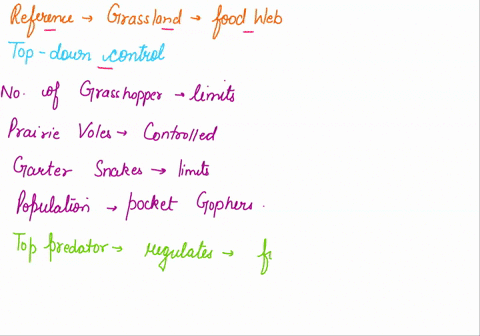 Reference → Grassland → food Web
Top-down control
No. of Grasshopper → limits
Prairie Voles → Controlled
Garter Snakes → limits
Population → pocket Gophers.
Top predator → regulates →